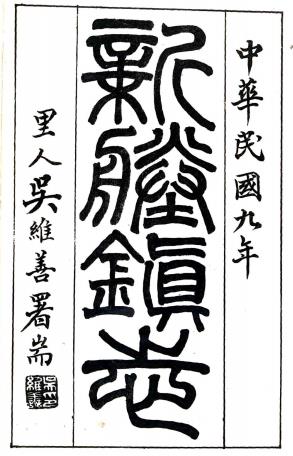 中華民國九年
新塍鎮志
里人吳維善署耑
吳印維善